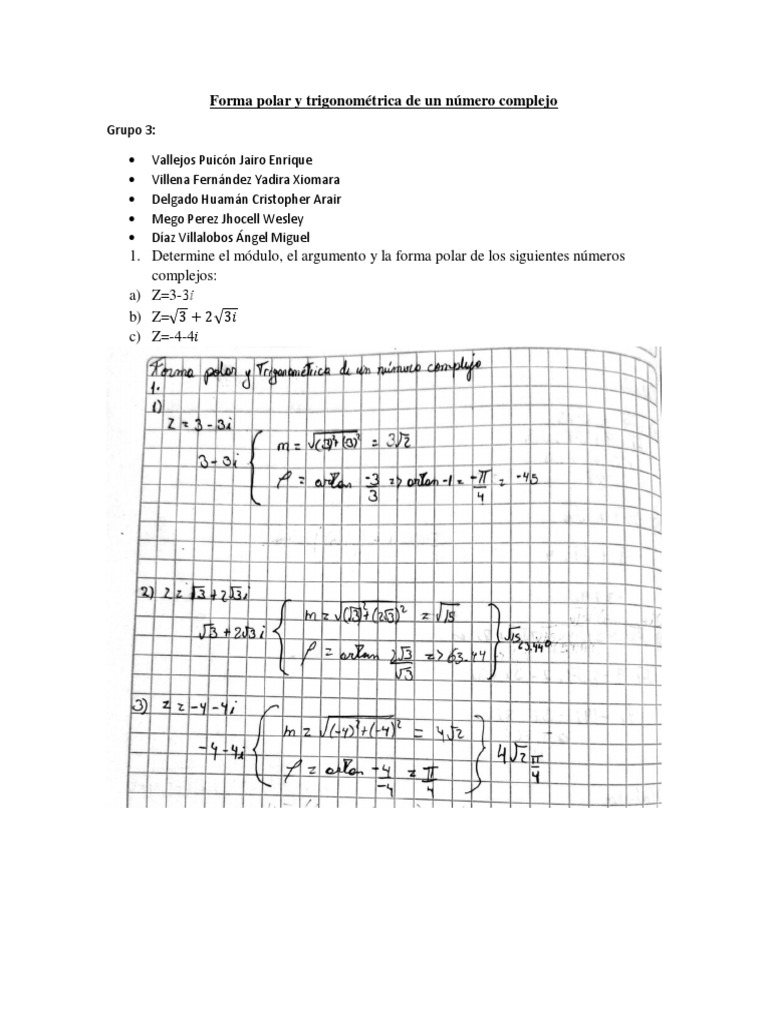 Forma polar y trigonométrica de un número complejo
Grupo 3:
• Vallejos Puicón Jairo Enrique
• Villena Fernández Yadira Xiomara
• Delgado Huamán Cristopher Arair
• Mego Perez Jhocell Wesley
• Díaz Villalobos Ángel Miguel
1. Determine el módulo, el argumento y la forma polar de los siguientes números
complejos:
a) Z=3-3i
b) Z=√3 + 2√3i
c) Z=-4-4i
Forma polar y Trigonométrica de un número complejo
1.
1)
z = 3 - 3i
3 - 3i { m = √(3)²+(3)² = 3√2
φ = artan -3/3 => artan -1 = -π/4 = -45
2) z = √3 + 2√3 i
√3 + 2√3 i { m = √(√3)²+(2√3)² = √15
φ = artan 2√3/√3 => 63.44 } √15 63.44°
3) z = -4 - 4i
-4 - 4i { m = √(-4)²+(-4)² = 4√2
φ = artan -4/-4 = π/4 } 4√2 π/4